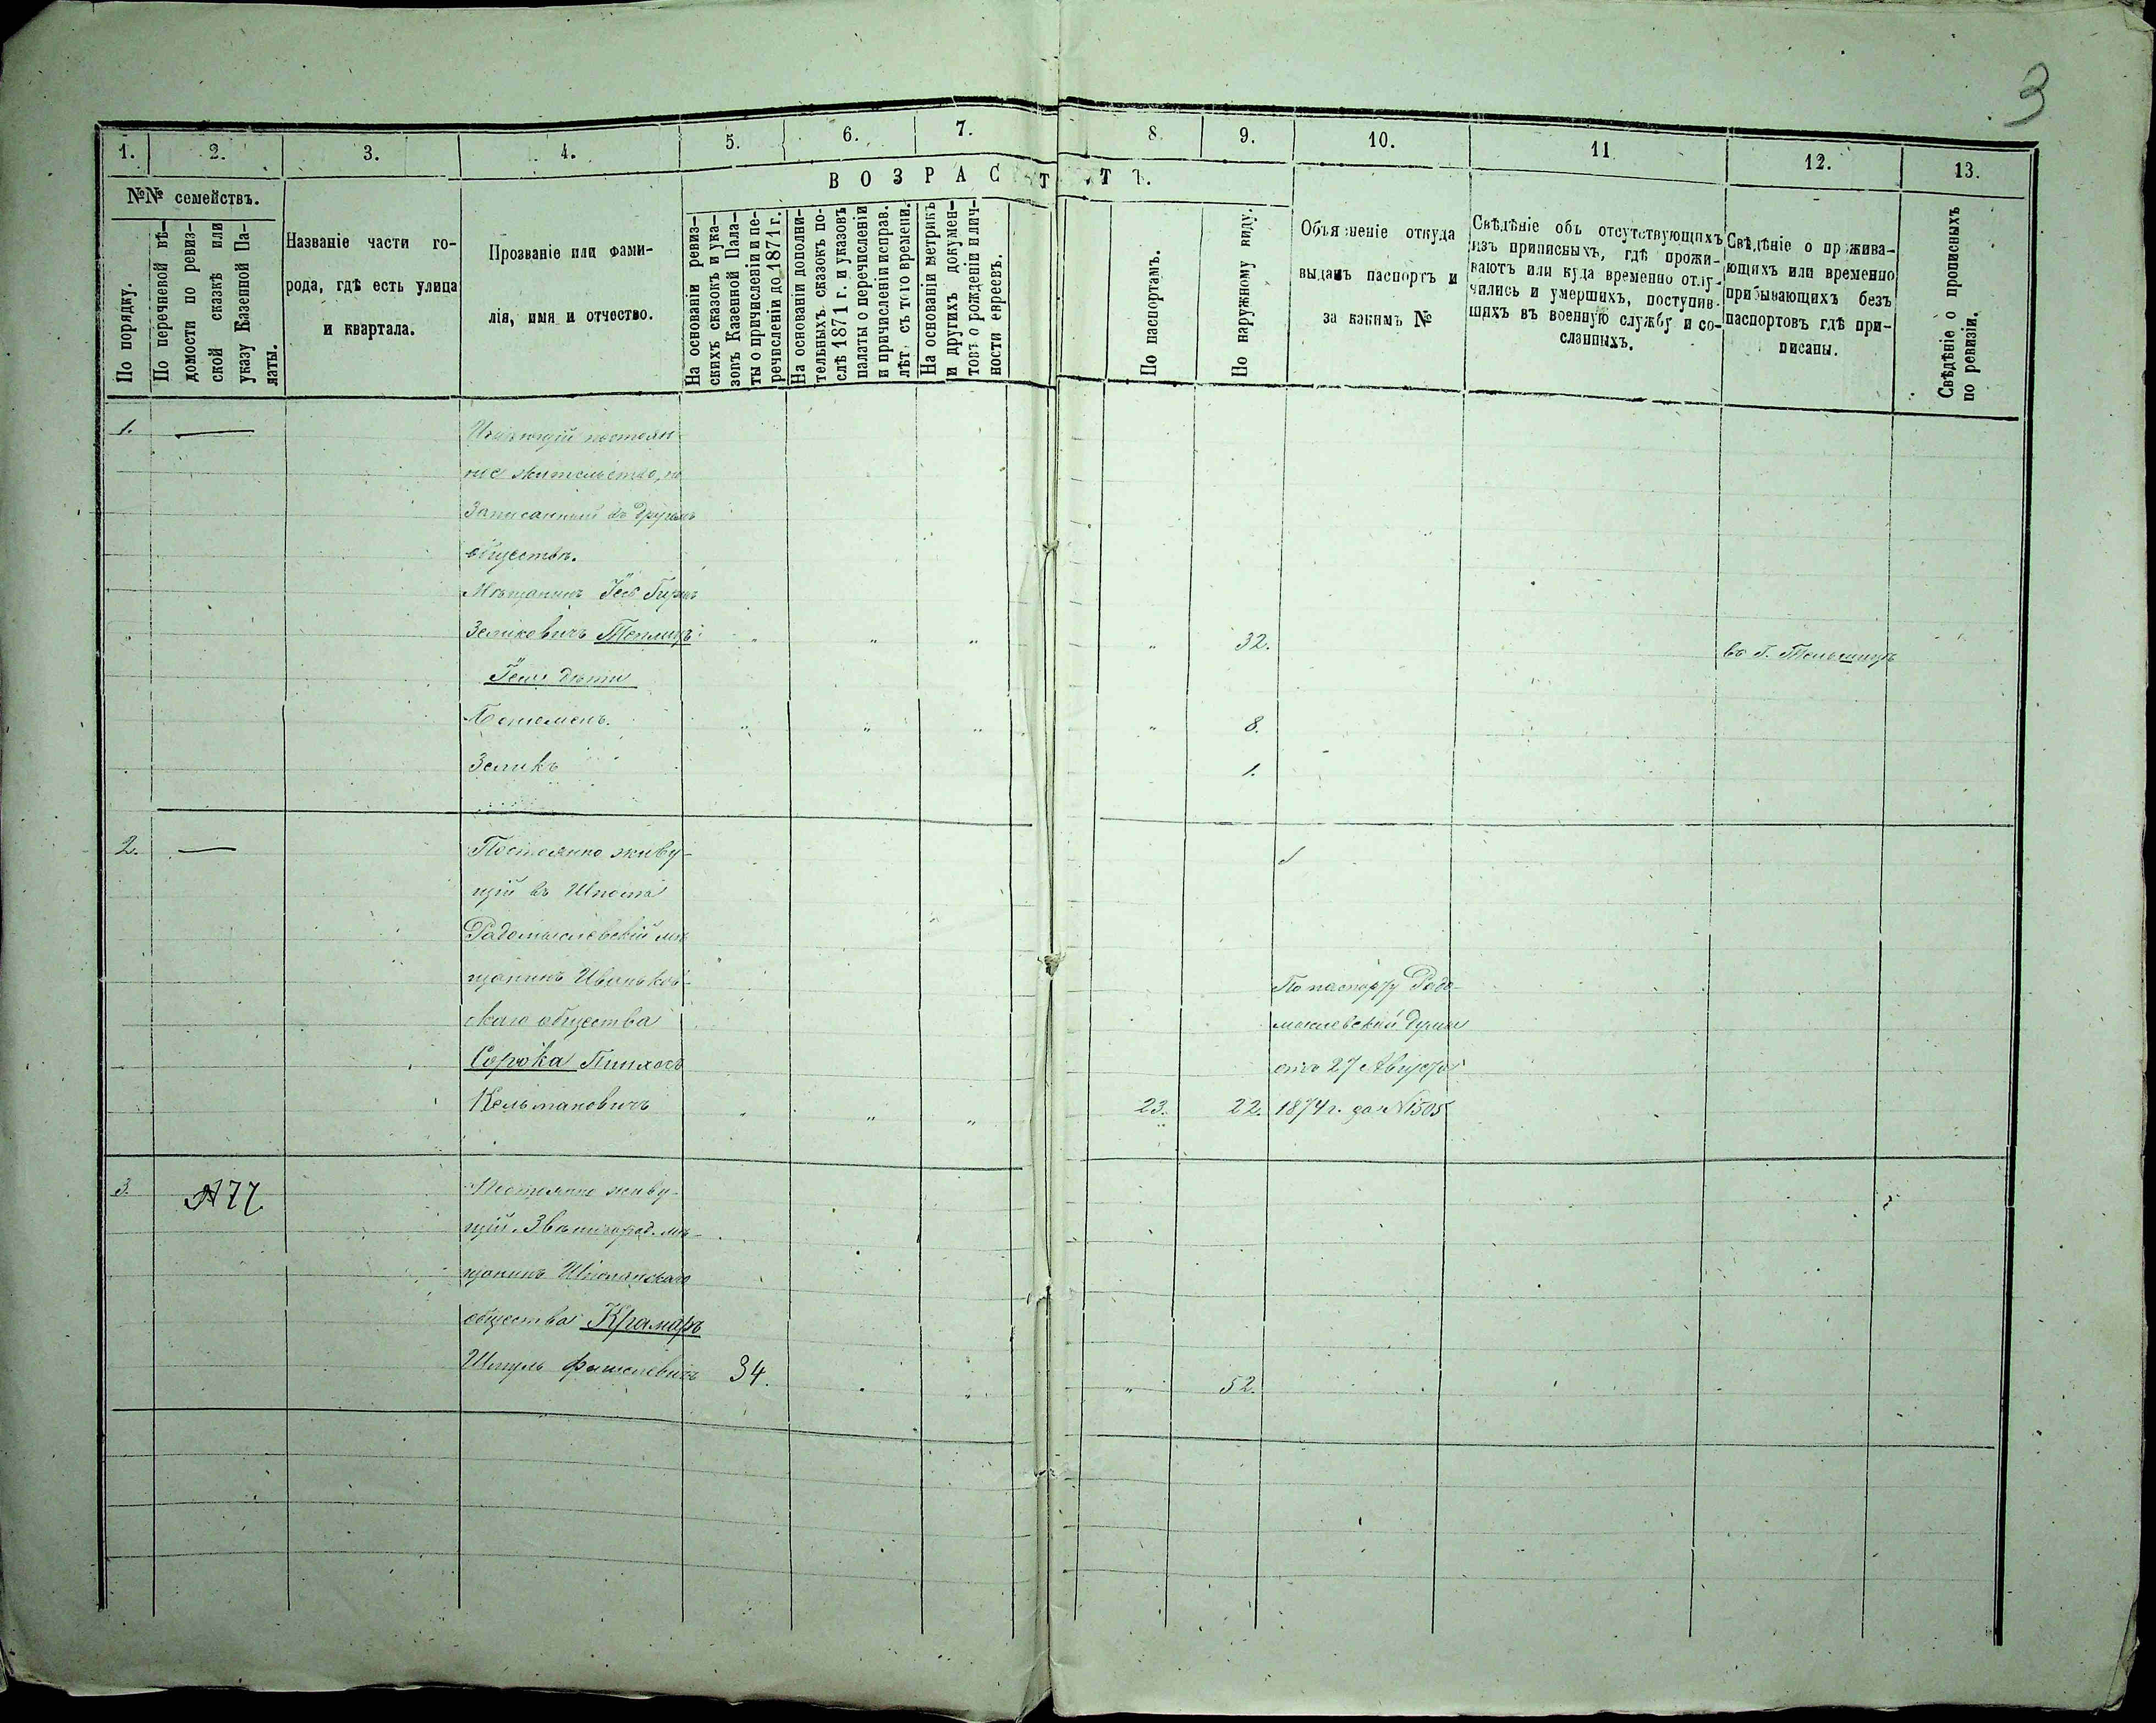 3
1. 2. 3. 4. 5. 6. 7. 8. 9. 10. 11 12. 13.
№№ семействъ.
По порядку.
По перечневой вѣ-
домости по ревиз-
ской сказкѣ или
указу Казенной Па-
латы.
Названіе части го-
рода, гдѣ есть улица
и квартала.
Прозваніе или фами-
лія, имя и отчество.
ВОЗРАСТЪ.
На основаніи ревиз-
скихъ сказокъ и ука-
зовъ Казенной Пала-
ты о причисленіи и пе-
речисленіи до 1871 г.
На основаніи дополни-
тельныхъ сказокъ по-
слѣ 1871 г. и указовъ
палаты о перечисленіи
и причисленіи исправ.
лѣт. съ того времени.
На основаніи метрикъ
и другихъ докумен-
товъ о рожденіи и лич-
ности евреевъ.
По паспортамъ.
По наружному виду.
Объясненіе откуда
выданъ паспортъ и
за какимъ №
Свѣдѣніе объ отсутствующихъ
изъ приписныхъ, гдѣ прожи-
ваютъ или куда временно отлу-
чились и умершихъ, поступив-
шихъ въ военную службу и со-
сланныхъ.
Свѣдѣніе о прожива-
ющихъ или временно
прибывающихъ безъ
паспортовъ гдѣ при-
писаны.
Свѣдѣніе о прописныхъ
по ревизіи.
1. —
Имѣющій постоян-
ное жительство, но
Записанный въ другомъ
обществѣ.
Мѣщанинъ Гершъ
Зеликовичъ " " " " 32.
дѣти
" " " " 8.
Зеликъ 1.
2. — Постоянно живу-
щій въ Шпола
Радомысловскій мѣ-
щанинъ Иваньков- По паспорту Радо-
скаго общества мысловской думы
Сорока Пинхосъ отъ 27 Августа
Кельмановичъ " " " 23. 22. 1874 г. за №1505
3. №77 Постоянно живу-
щій Звенигород. мѣ-
щанинъ Шполянскаго
общества Крамаръ
Шмуль 34. " " 52.